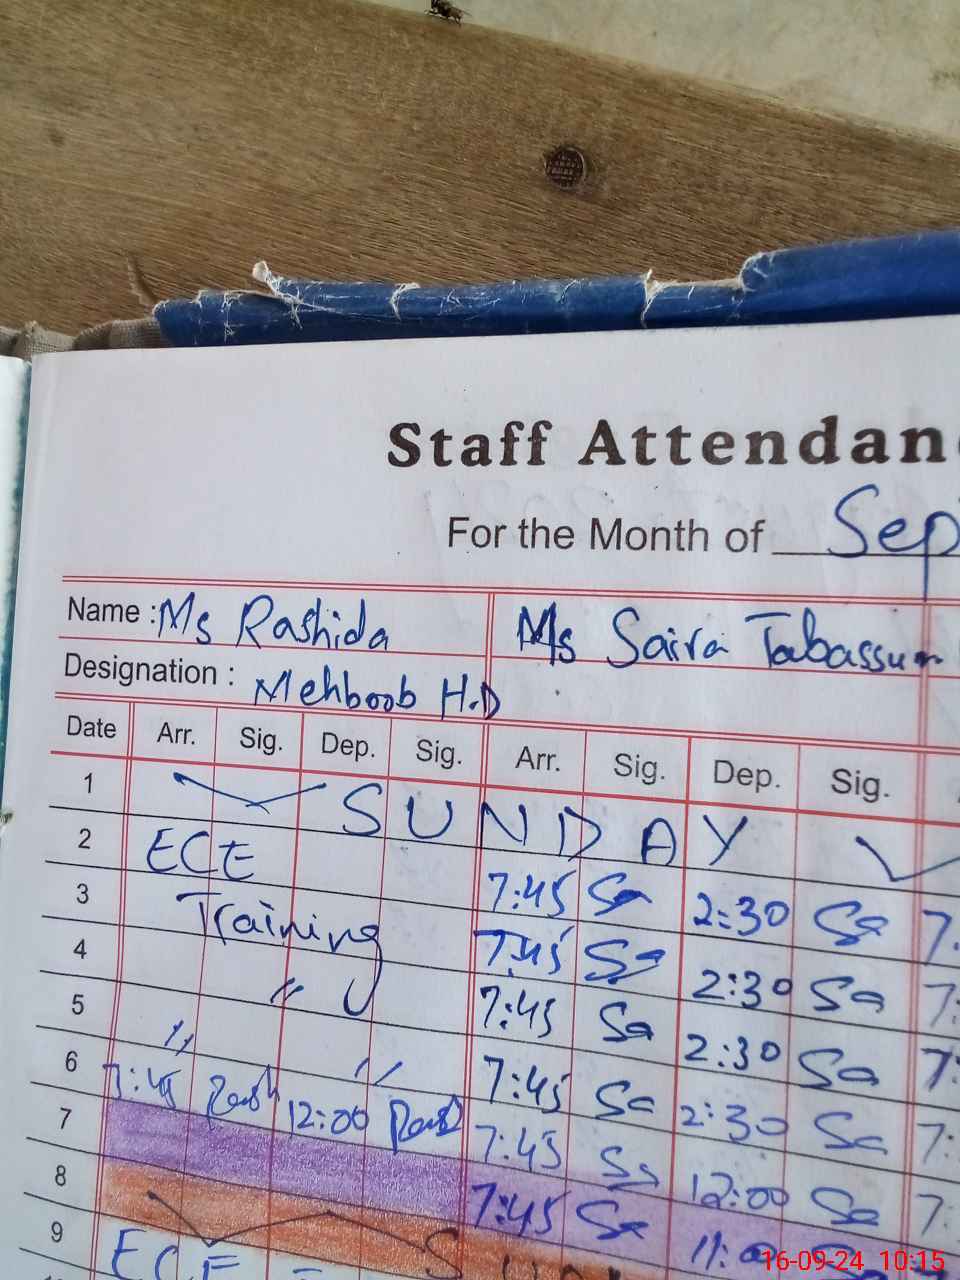 Staff Attendan
For the Month of Sep
Name : Ms Rashida Ms Saira Tabassum
Designation : Mehboob H.D
Date Arr. Sig. Dep. Sig. Arr. Sig. Dep. Sig.
1 SUNDAY
2 ECE 7:45 Sa 2:30 Sa 7.
3 Training 7:45 Sa 2:30 Sa 7:
4 〃 7:45 Sa 2:30 Sa 7:
5 〃 〃 7:45 Sa 2:30 Sa 7:
6 7:45 Rash 12:00 Rash 7:45 Sa 12:00 Sa 7:
7 7:45 Sa 11:
8 SUN
9 ECE
16-09-24 10:15